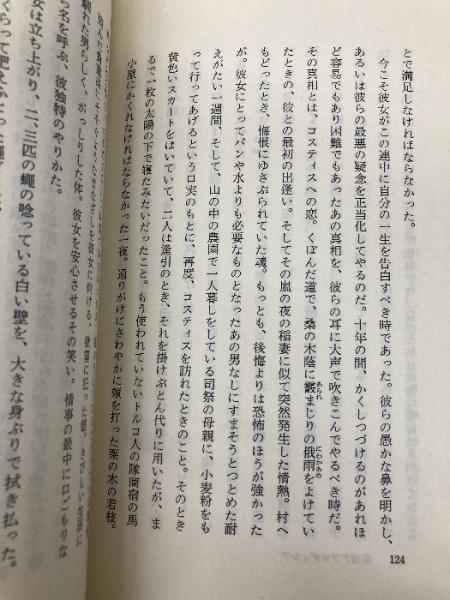 とで満足しなければならなかった。
今こそ彼女がこの連中に自分の一生を告白すべき時であった。彼らの愚かな鼻を明かし、
あるいは彼らの最悪の疑念を正当化してやるのだ。十年の間、かくしつづけるのがあれほ
ど容易でもあり困難でもあったあの真相を、彼らの耳に大声で吹きこんでやるべき時だ。
その真相とは、コスティスへの恋。くぼんだ道で、桑の木蔭に霰まじりの俄雨をよけてい
たときの、彼との最初の出逢い。そしてその嵐の夜の稲妻に似て突然発生した情熱。村へ
もどったとき、悔恨にゆさぶられていた魂。もっとも、後悔よりは恐怖のほうが強かった
が。彼女にとってパンや水よりも必要なものとなったあの男なしにすまそうとつとめた耐
えがたい一週間、そして、山の中の農園で一人暮しをしている司祭の母親に、小麦粉をも
って行ってあげるという口実のもとに、再度、コスティスを訪れたときのこと。そのとき
黄色いスカートをはいていて、二人は逢引のとき、それを掛けぶとん代りに用いたが、ま
るで一枚の太陽の下で寝たみたいだったこと。もう使われていないトルコ人の隊商宿の馬
小屋にかくれなければならなかった一夜。通りがけにさわやかに頬を打った栗の木の若枝。
馴れた男らしく、がっしりした体。彼女を安心させるその笑い。情事の最中に口ごもりな
ら名を呼ぶ、彼独特のやりかた。
女は立ち上がり、二、三匹の蠅の唸っている白い壁を、大きな身ぶりで拭き払った。
124